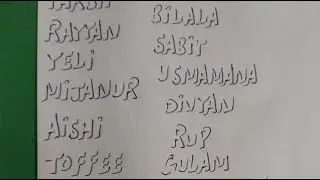 RAYYAN
YELI
MITANUR
AISHI
TOFFEE
BILALA
SABIT
USMAMANA
DIVYAN
RUP
GULAM